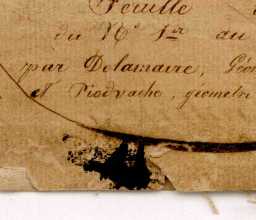 Feuille
du N° 1er au
par Delamaire, Géo
et Piodvache, géomètr